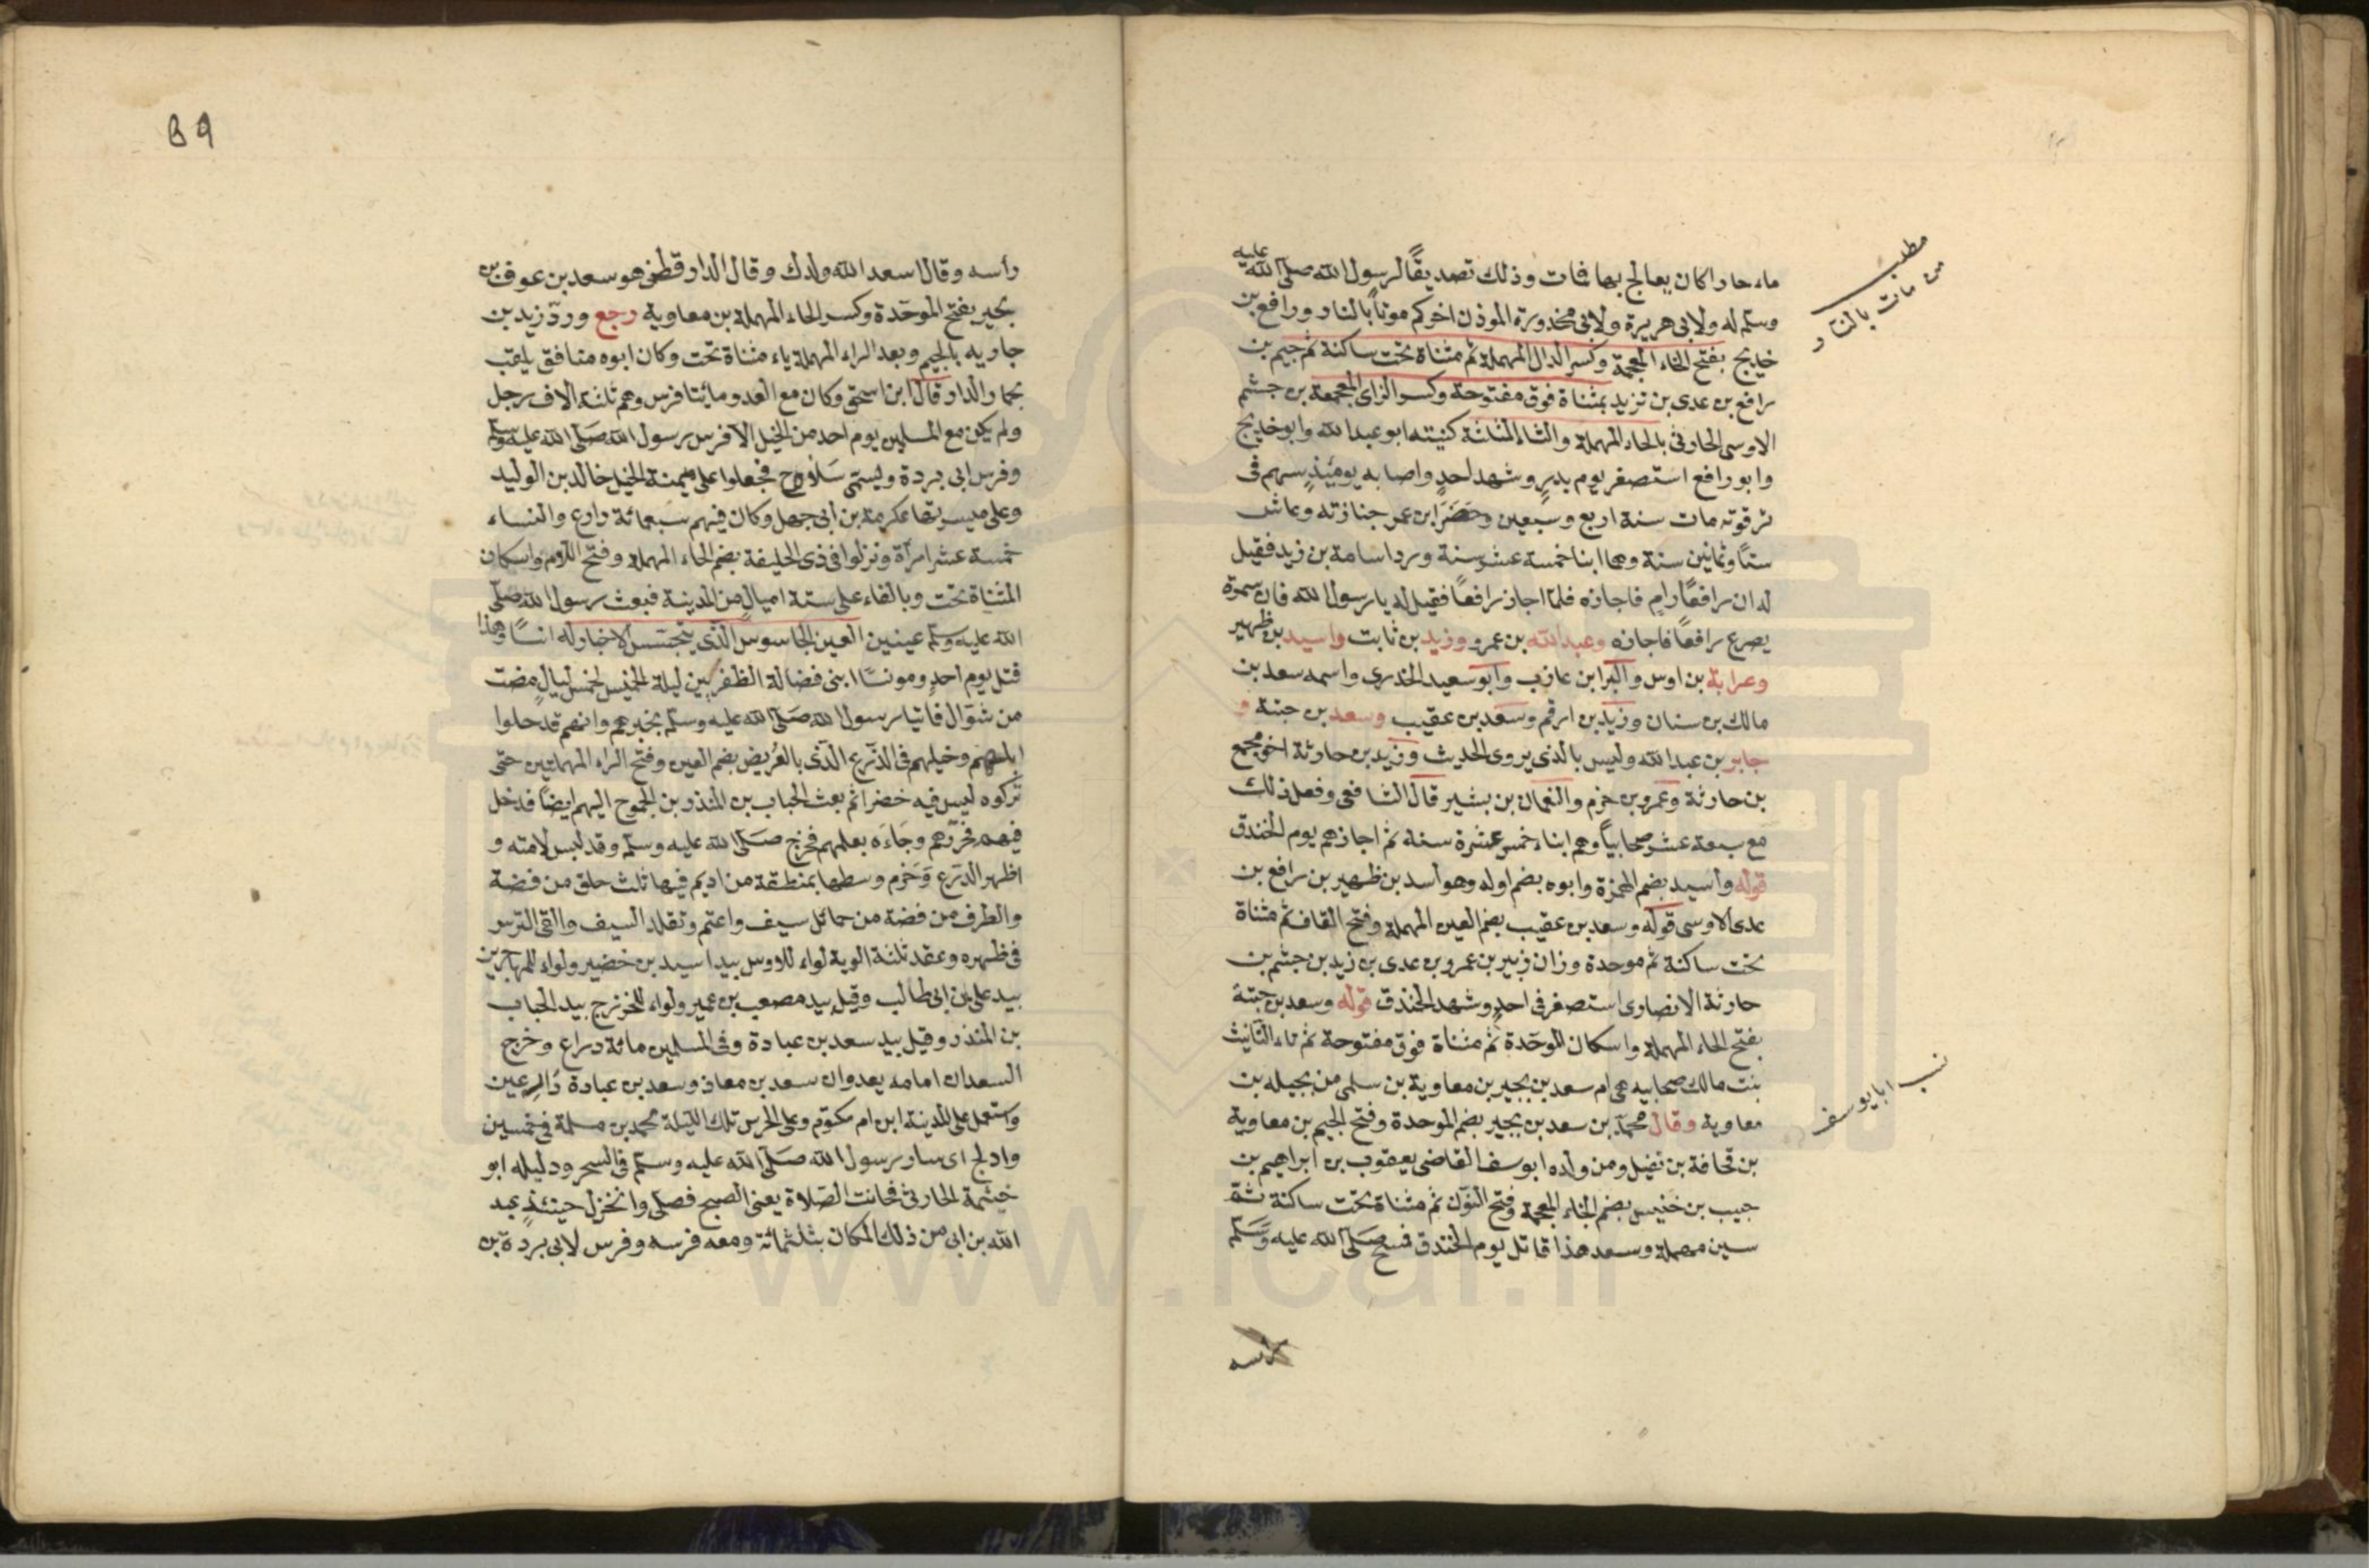 ماء حارا كان يعالج بها فمات وذلك تصديقًا لرسول الله صلى الله عليه
وسلم له ولابى هريرة ولابى محذورة الموذن اخركم موتًا بالنار ورافع بن
خديج بفتح الخاء المعجمة وكسر الدال المهملة ثم مثناة تحت ساكنة ثم جيم بن
رافع بن عدى بن تزيد بمثناة فوق مفتوحة وكسر الزاى المعجمة بن جشم
الاوسى الحارثى بالحاء المهملة والثاء المثلثة كنيته ابو عبد الله وابو خديج
وابو رافع استصغر يوم بدرٍ وشهد احدٍ واصابه يومئذٍ سهم فى
ترقوته مات سنة اربع وسبعين وحَضَرَ ابن عمر جنازته وعاش
ستًا وثمانين سنة وهما ابنا خمسة عشر سنة ورد اسامة بن زيد فقيل
له ان رافعًا رامٍ فاجازه فلما اجاز رافعًا فقيل له يا رسول الله فان سمرة
يصرع رافعًا فاجازه وعبد الله بن عمر وزيد بن ثابت واسيد بن ظهير
وعرابة بن اوس والبرا بن عازب وابو سعيد الخدرى واسمه سعد بن
مالك بن سنان وزيد بن ارقم وسعد بن عقيب وسعد بن حبتة و
جابر بن عبد الله وليس بالذى يروى الحديث وزيد بن حارثة اخو مجمع
بن حارثة وعمرو بن حزم والنعمان بن بشير قال الشافعى وفعل ذلك
مع سبعة عشر صحابيا وهم ابناء خمس عشرة سنة ثم اجازهم يوم الخندق
قوله واسيد بضم الهمزة وابوه بضم اوله وهو اسد بن ظهير بن رافع بن
عدى الاوسى قوله وسعد بن عقيب بضم العين المهملة وفتح القاف ثم مثناة
تحت ساكنة ثم موحدة وزان زبير بن عمرو بن عدى بن زيد بن جشم بن
حارثة الانصارى استصغر فى احدٍ وشهد الخندق قوله وسعد بن حبتة
بفتح الحاء المهملة واسكان الموحّدة ثم مثناة فوق مفتوحة ثم تاء التانيث
بنت مالك صحابيه هى ام سعد بن بجير بن معاوية بن سلمى من بجيله بن
معاوية وقال محمد بن سعد بن بجير بضم الموحدة وفتح الجيم بن معاوية
بن قحافة بن نفيل ومن ولده ابو يوسف القاضى يعقوب بن ابراهيم بن
حبيب بن خنيس بضم الخاء المعجمة وفتح النون ثم مثناة تحت ساكنة ثم
سين مهملة وسعد هذا قاتل يوم الخندق فمسح صلى الله عليه وسلم
مطلب
من مات بالنار
نسب ابا يوسف
راسه وقال اسعد الله ولدك وقال الدارقطنى هو سعد بن عوف بن
بحير بفتح الموحّدة وكسر الحاء المهملة بن معاوية رجع وردّ زيد بن
جاريه بالجيم وبعد الراء المهملة ياء مثناة تحت وكان ابوه منافق يلقب
بحمار الدار قال ابن اسحق وكان مع العدو مائتا فرس وهم ثلثة الاف رجل
ولم يكن مع المسلمين يوم احد من الخيل الا فرس رسول الله صلى الله عليه وسلم
وفرس ابى بردة ويسمى مَلاوح فجعلوا على ميمنة الخيل خالد بن الوليد
وعلى ميسرتها عكرمة بن ابى جهل وكان فيهم سبعمائة دارع والنساء
خمسة عشر امرأة ونزلوا فى ذى الحليفة بضم الحاء المهملة وفتح اللام واسكان
المثناة تحت وبالفاء على ستة اميالٍ من المدينة فبعث رسول الله صلى
الله عليه وسلم عينين العين الجاسوس الذى يتجسس الاخبار له انسًا وهذا
قتل يوم احدٍ ومونسًا ابنى فضالة الظفريين ليلة الخميس لخمس ليالٍ مضت
من شوّال فاتيا رسول الله صلى الله عليه وسلم بخبرهم وانهم قد حلوا
ابلهم وخيلهم فى الذرع الذى بالعُريض بضم العين وفتح الراء المهملتين حتى
تركوه ليس فيه خضرا ثم بعث الحباب بن المنذر بن الجموح اليهم ايضًا فدخل
فيهم فحزرهم وجَاءَه بعلمهم فخرج صلى الله عليه وسلم وقد لبس لامته و
اظهر الدرع وَحَزم وسطها بمنطقة من اديم فيها ثلث حلق من فضة
والطرف من فضة من حمائل سيف واعتم وتقلد السيف والقى الترس
فى ظهره وعقد ثلثة الوية لواء للاوس بيد اسيد بن حضير ولواء للمهاجرين
بيد على بن ابى طالب وقيل بيد مصعب بن عمير ولواء للخزرج بيد الحباب
بن المنذر وقيل بيد سعد بن عبادة وفى المسلمين مائة دراع وخرج
السعدان امامه يعدوان سعد بن معاذ وسعد بن عبادة دَارِعين
واستعمل على المدينة ابن ام مكتوم وعلى الحرس تلك الليلة محمد بن مسلمة فى خمسين
وادلج اى سار رسول الله صلى الله عليه وسلم فى السحر ودليله ابو
خيثمة الحارثى فحانت الصلاة يعنى الصبح فصلى وانخزل حينئذٍ عبد
الله بن ابى من ذلك المكان بثلثمائة ومعه فرسه وفرس لابى بردة بن
www.ical.ir